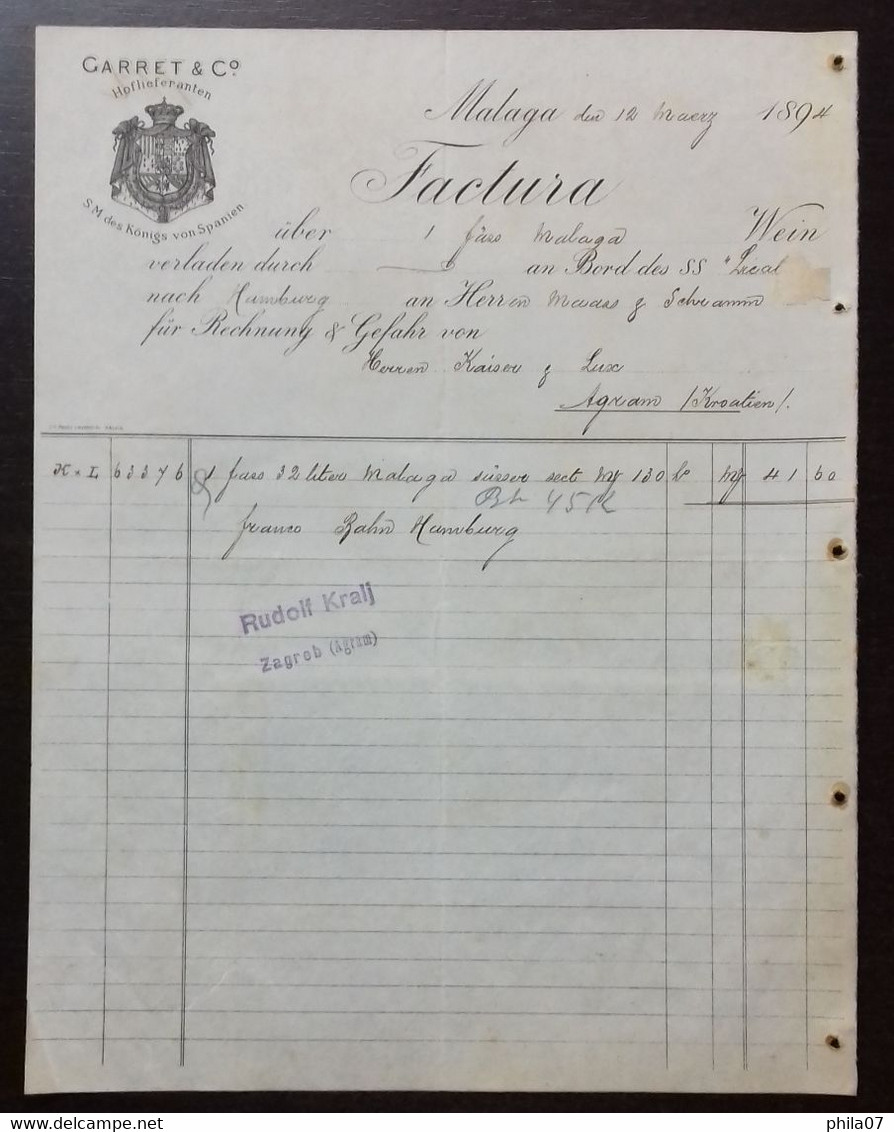 GARRET & Cº
Hoflieferanten
S.M des Königs von Spanien
Malaga den 12 Maerz 1894
Factura
über 1 fass Malaga Wein
verladen durch an Bord des SS
nach Hamburg an Herren Maass & Schramm
für Rechnung & Gefahr von
Herren Kaiser & Lux
Agram /Kroatien/.
K * L 63376 1 fass 32 liter Malaga süsser sect M 130 M 41 60
45
franco Bahn Hamburg
Rudolf Kralj
Zagreb (Agram)
phila07